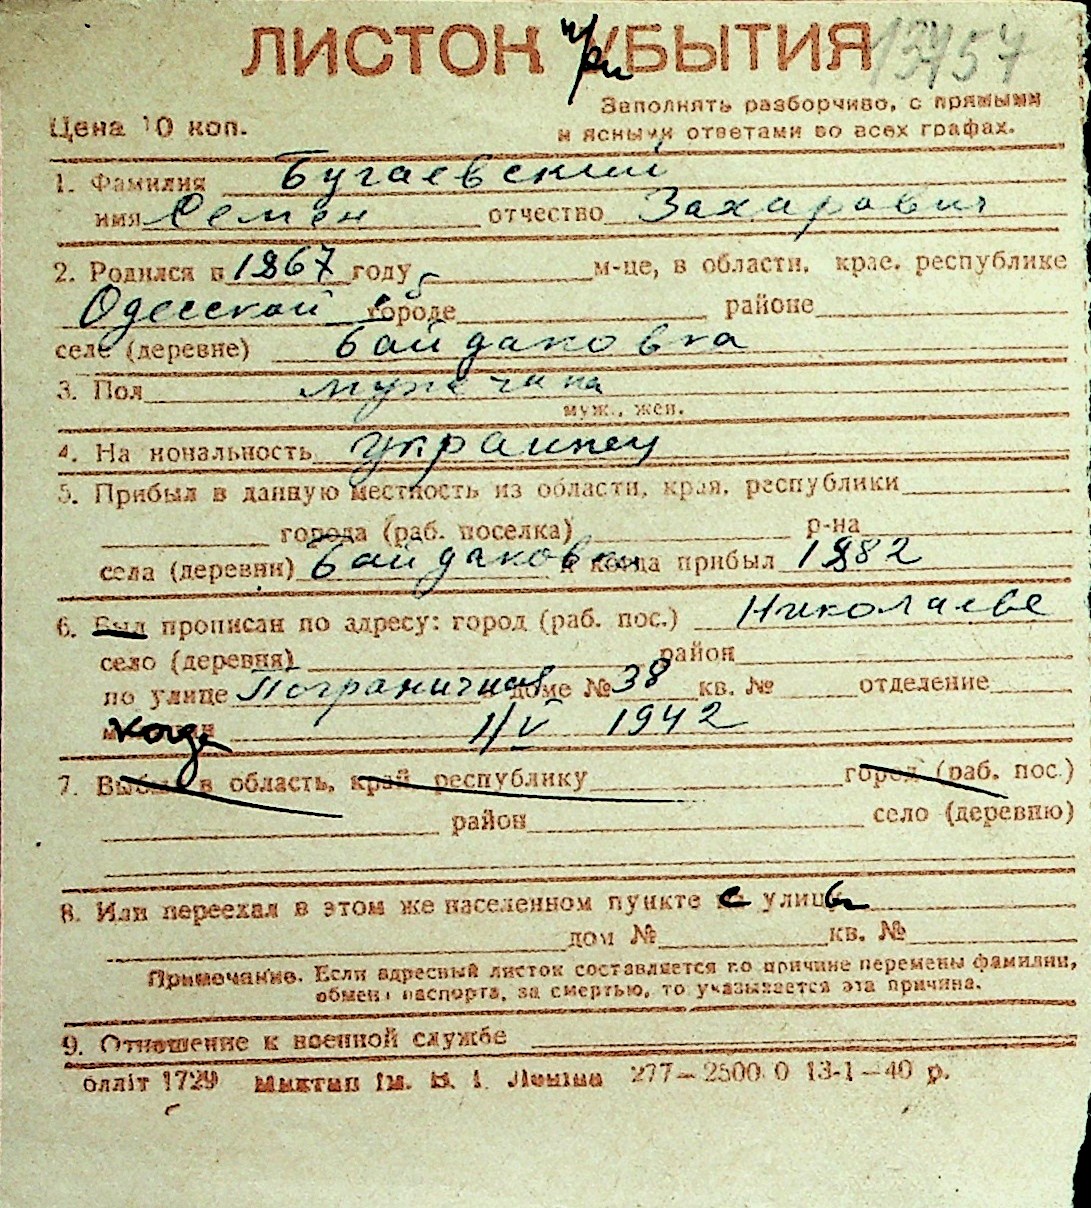 ЛИСТОН при УБЫТИЯ 13457
Заполнять разборчиво, с прямыми
Цена 10 коп.
и ясными ответами во всех графах.
1. Фамилия Бугаевский
имя Семен отчество Захарович
2. Родился в 1867 году м-це, в области, крае, республике
Одесской городе районе
селе (деревне) Байдаковка
3. Пол мужчина
муж., жен.
4. На иональность украинец
5. Прибыл в данную местность из области, края, республики
города (раб. поселка) р-на
села (деревни) Байдаковки и когда прибыл 1882
6. Был прописан по адресу: город (раб. пос.) Николаеве
село (деревня) район
по улице Пограничная доме № 38 кв. № отделение
когда 1/V 1942
7. Выбыл в область, край республику город (раб. пос.)
район село (деревню)
8. Или переехал в этом же населенном пункте с улицы
дом № кв. №
Примечание. Если адресный листок составляется по причине перемены фамилии,
обмена паспорта, за смертью, то указывается эта причина.
9. Отношение к военной службе
оллiт 1729 iм. В. I. Ленiна 277–2500 0 13-1–40 р.